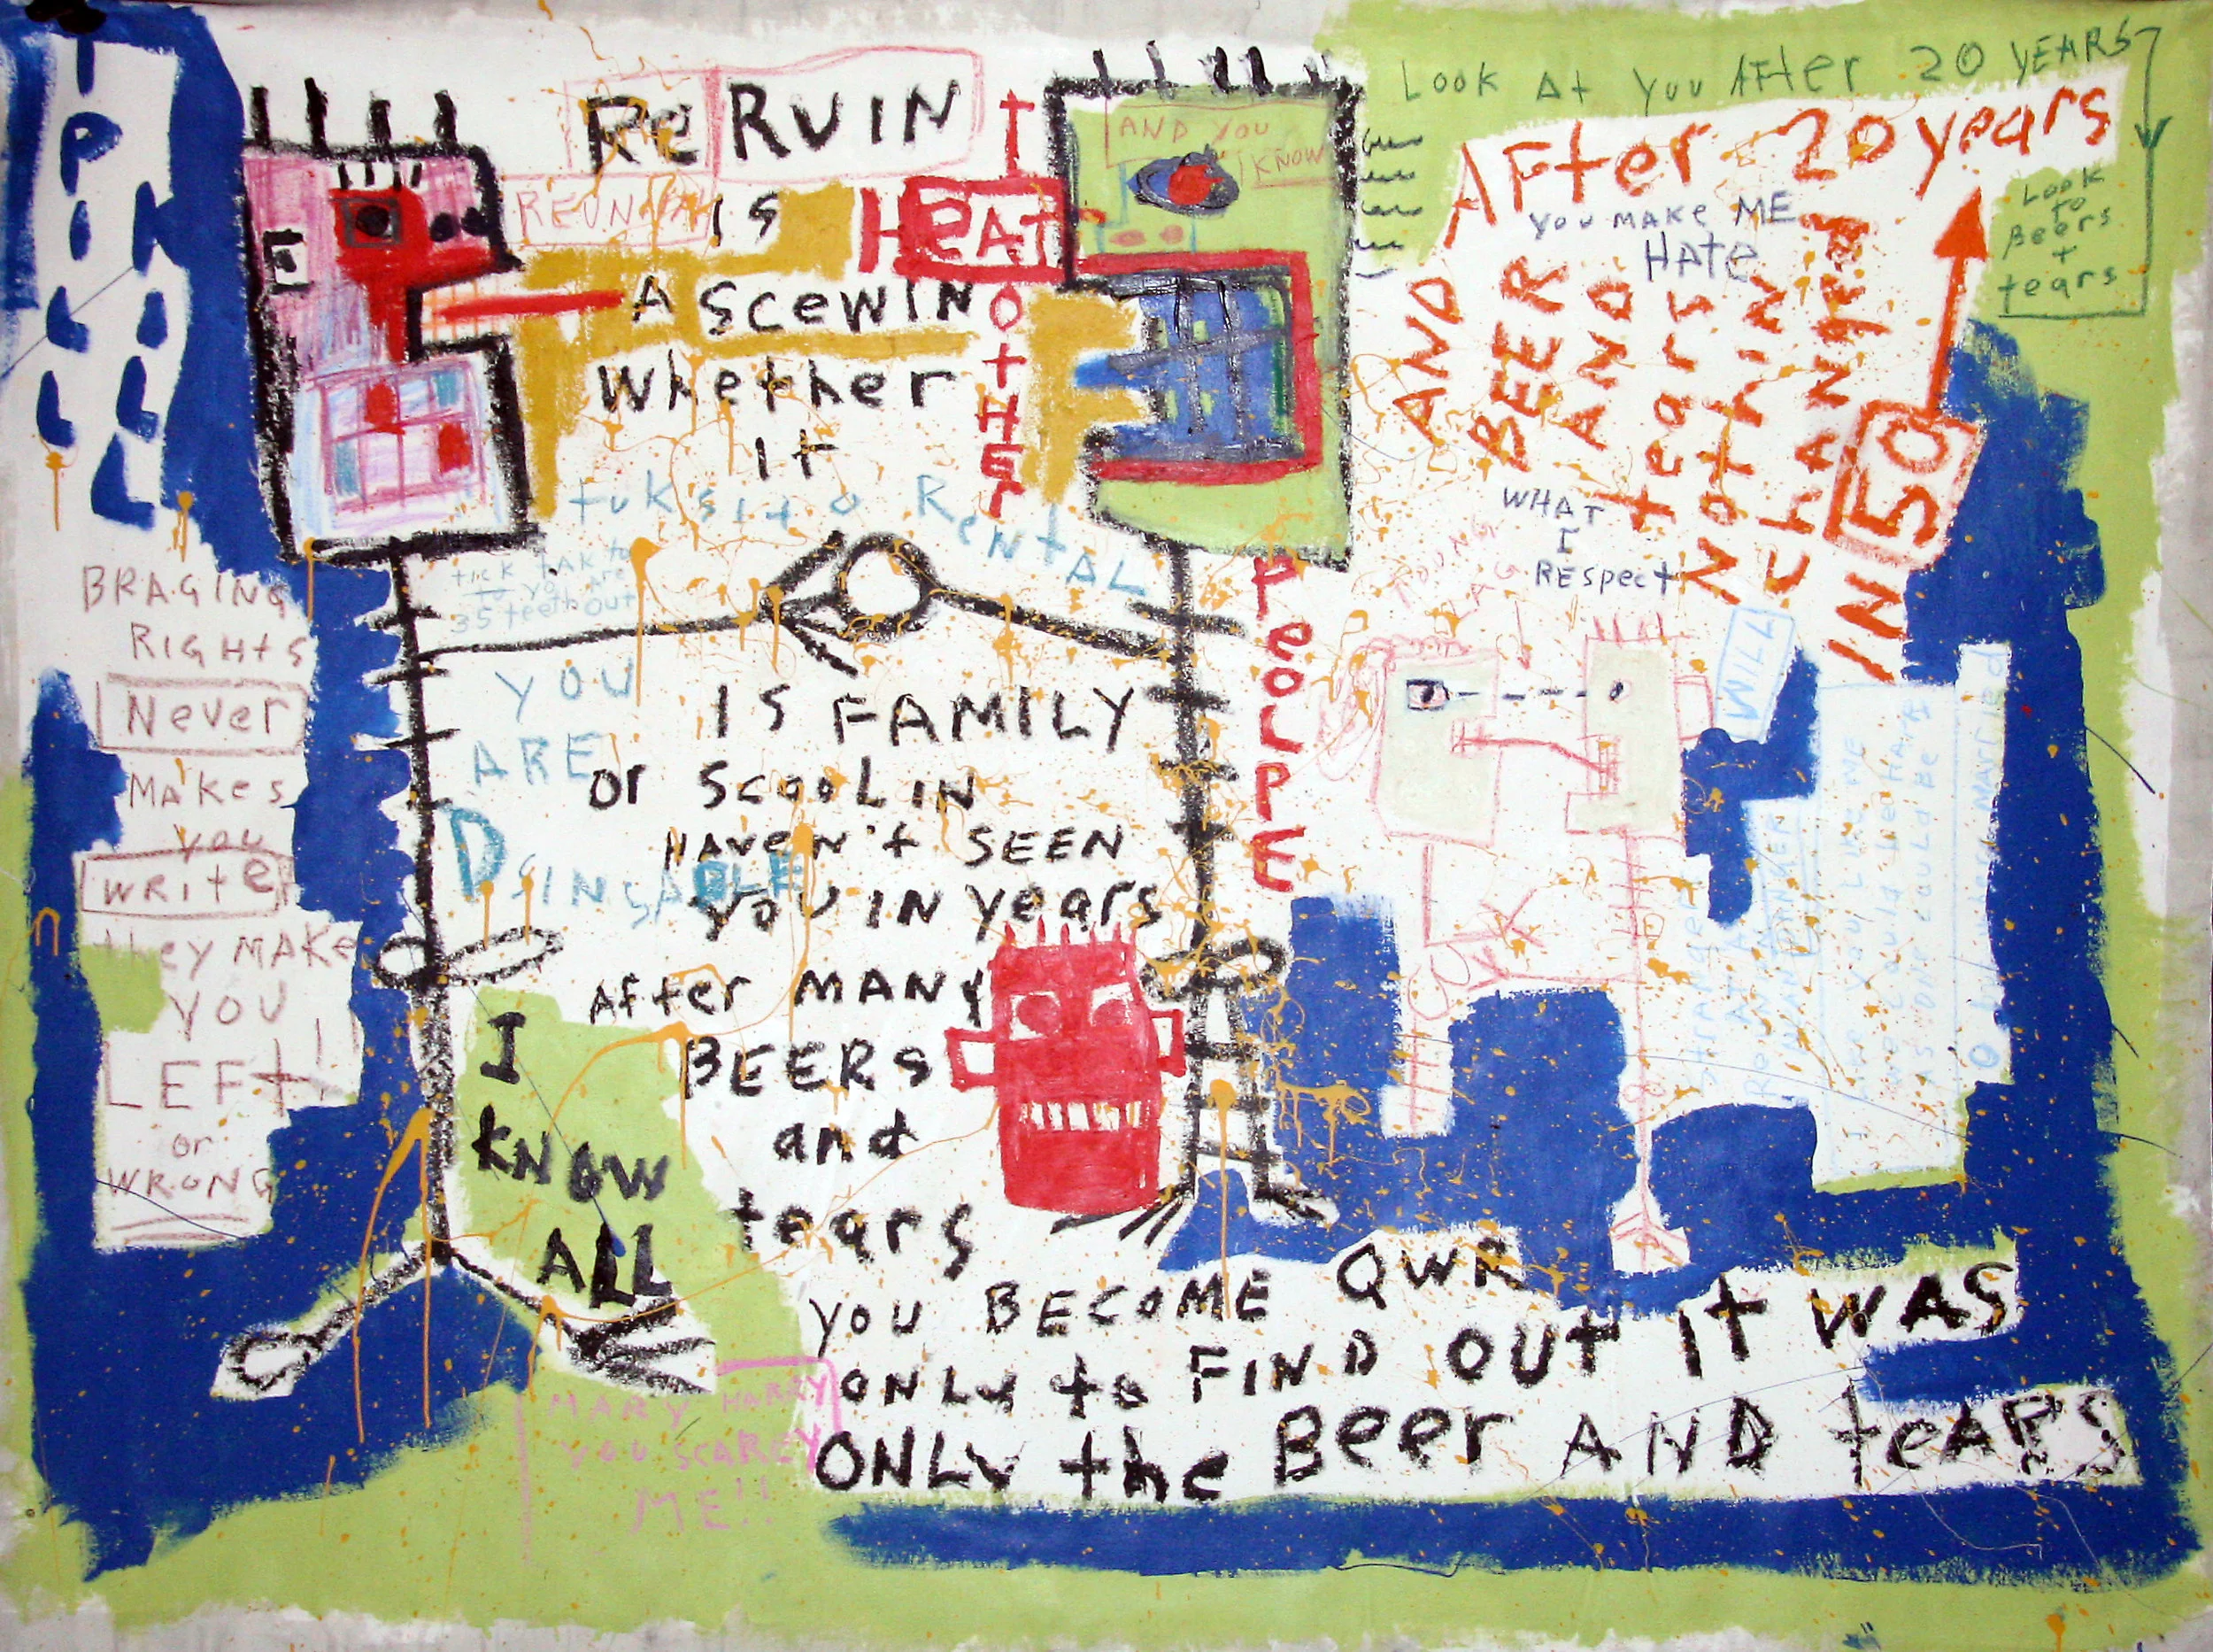 I
PILL
KILL
Re RUIN
REUNION
IS
A SCEWIN
Whether
It
I HeAT
OtHEr
PeOLPE
AND YOU
KNOW
Look At You After 20 YEARS
Look
to
Beers
+
tears
After 20 years
AND
BEER
AND
tears
Nothin
chANged
IN 50
YOU MAKe ME
HAte
WHAT
I
REspect
YOUNG
WILL
tuksito Rental
tick tAk to
to yo Are
35 teeth out
YOU
ARE
DSINSABLE
IS FAMILY
or Scool IN
HAVeN't SEEN
YOU IN years
After MANY
BEERS
and
tears
YOU BECOME QWR
ONLY to FIND OUt It WAS
ONLY the Beer AND teARS
E
BRAGING
RIGHtS
Never
MAKes
you
WRIte
they MAKe
YOU
LEFt!!
or
WRONG
I
KNOW
ALL
MARY HARRY
YOU SCAREY
ME!!
Stranger
At A